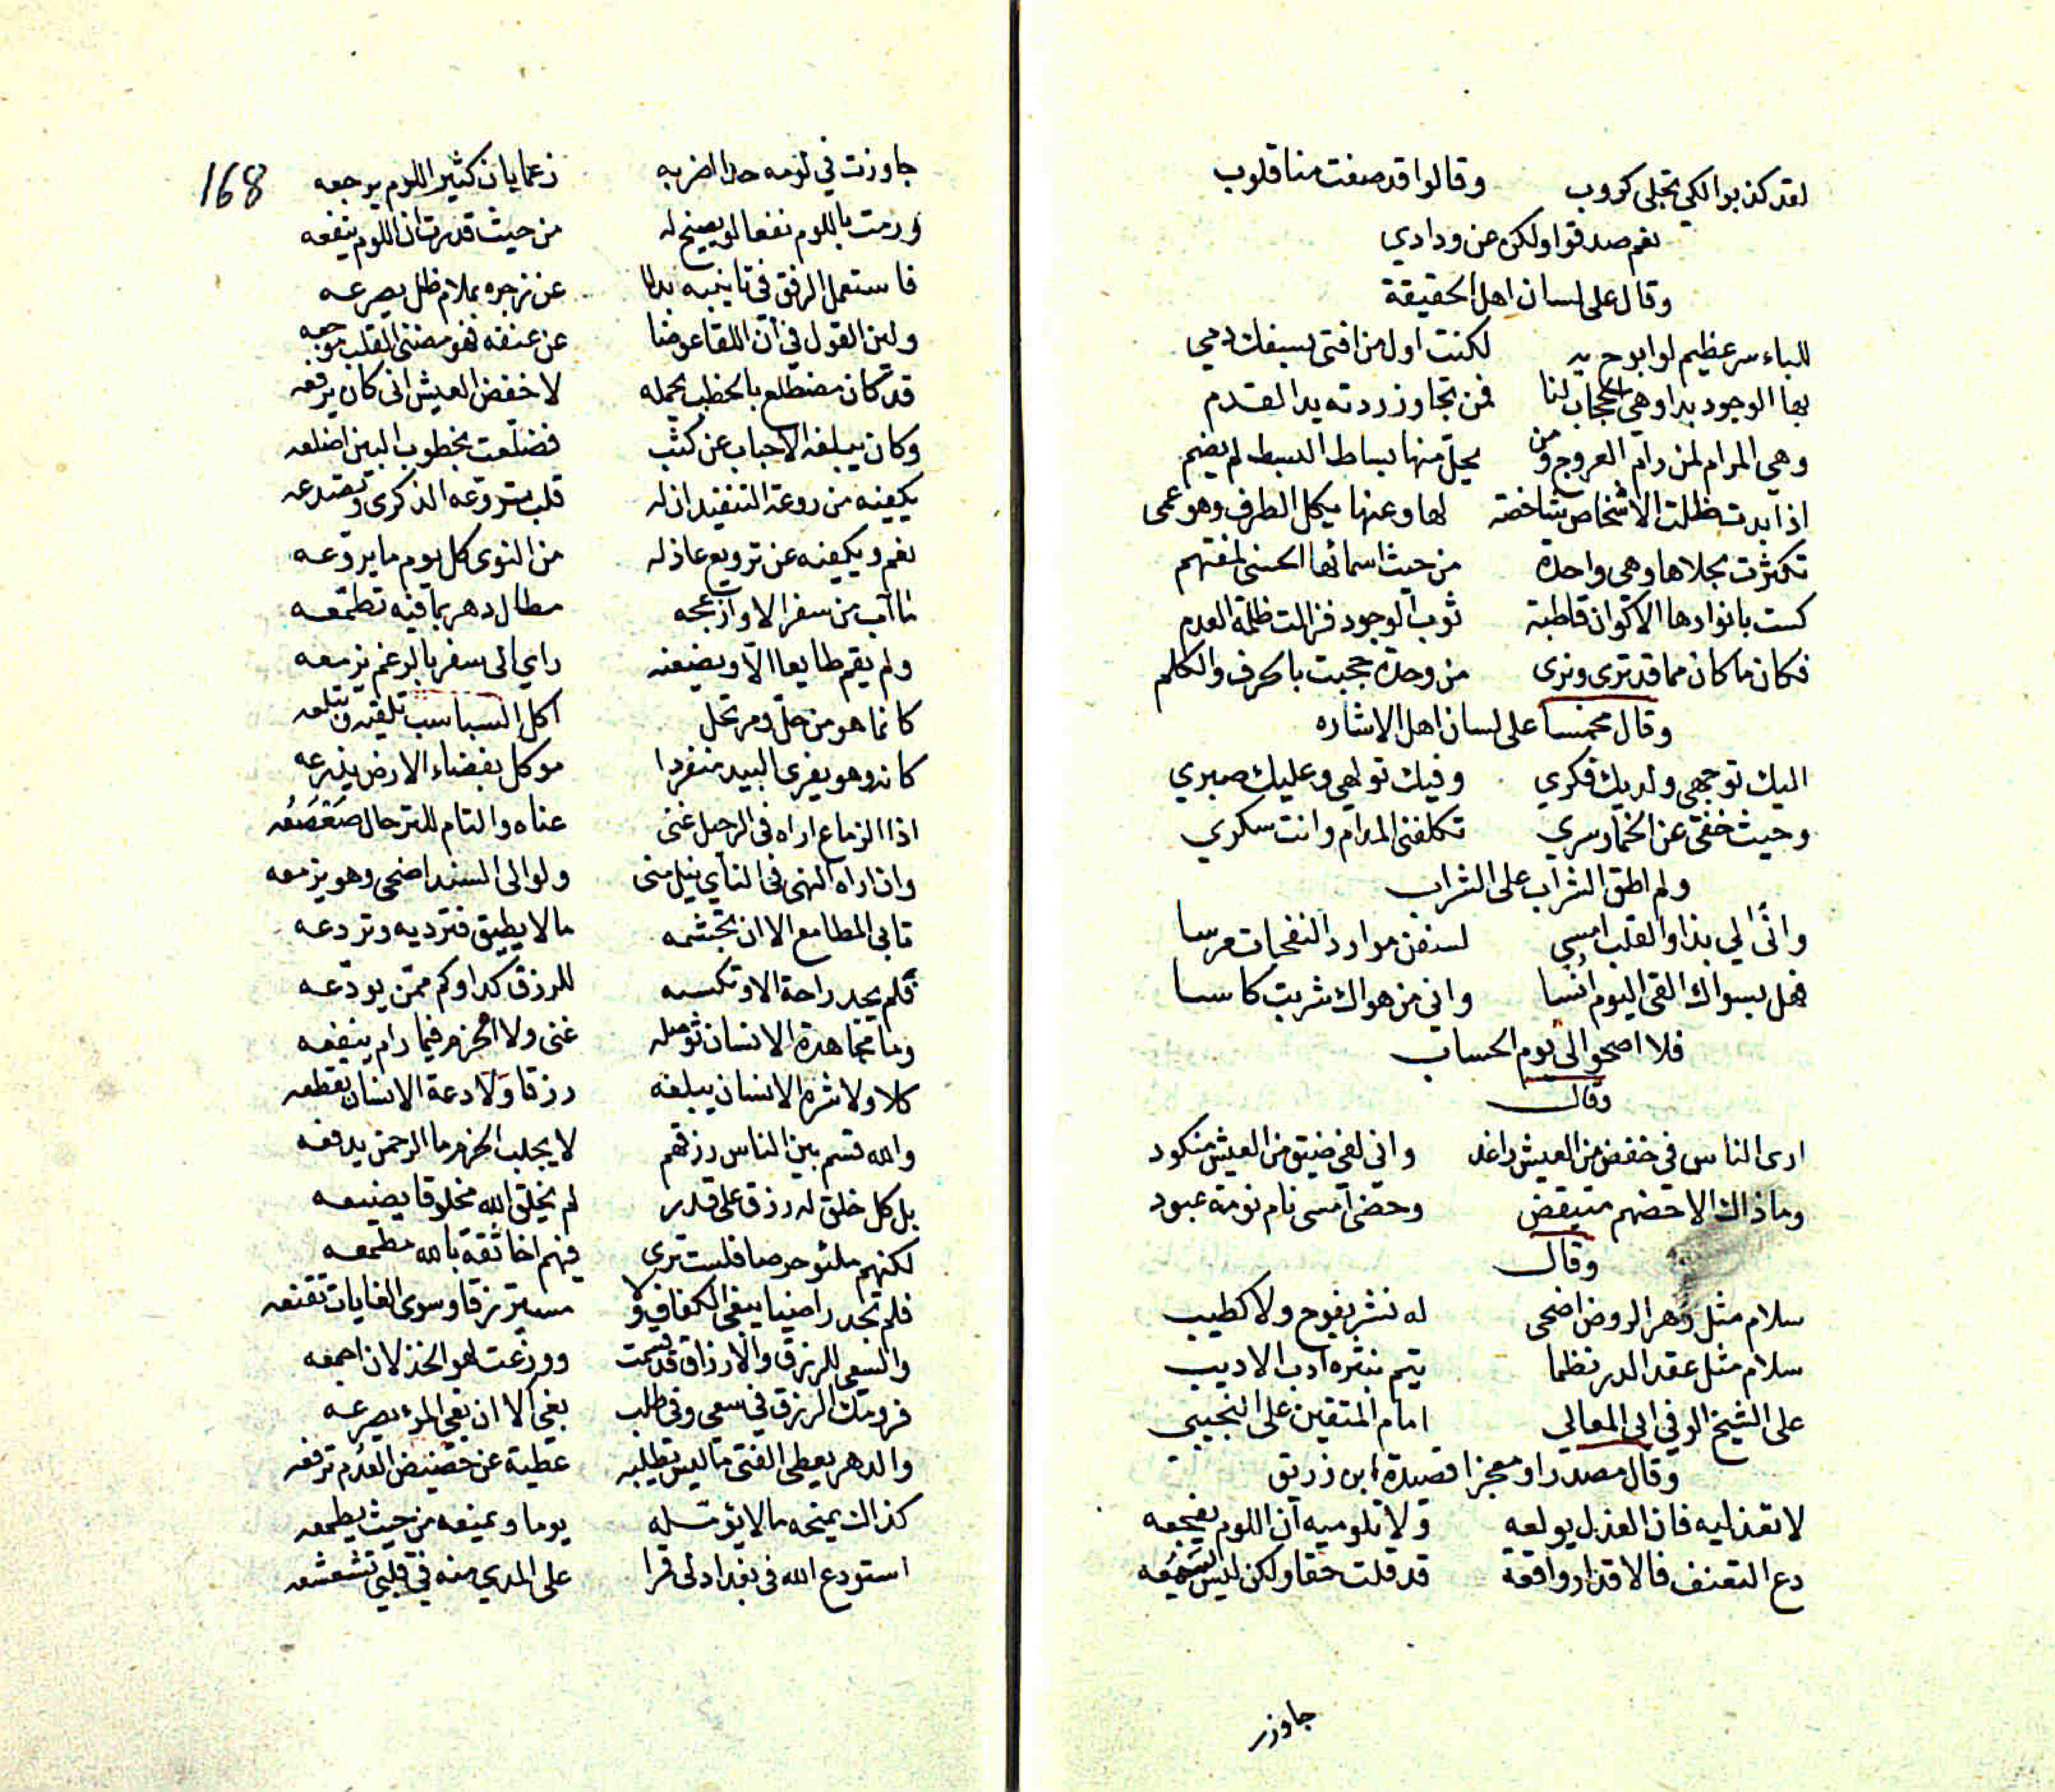 لقد كذبوا لكي تجلى كروب وقالوا قد صفت منا قلوب
نعم صدقوا ولكن عن ودادي
وقال على لسان اهل الحقيقة
للباء سر عظيم لو ابوح به لكنت اول من افتى بسفك دمي
بها الوجود بدا وهي الحجاب لنا فمن تجاوز ردته يد القدم
وهي المرام لمن رام العروج ومن يحل منها بساط البسط لم يضم
اذا بدت ظلت الاشخاص شاخصة لها وعنها يكل الطرف وهو عمى
تكثرت بجلاها وهي واحدة من حيث اسمائها الحسنى لمفتهم
كست بانوارها الاكوان قاطبة ثوب الوجود فزالت ظلمة العدم
فكان ما كان مما قد ترى ونرى من وحدة حجبت بالحرف والكلم
وقال مخمسا على لسان اهل الاشاره
اليك توجهي ولديك فكري وفيك تولهي وعليك صبري
وحيث خفى عن الخمار سري تكلفني المدام وانت سكري
ولم اطق الشراب على الشراب
وانى لي بذا والقلب امسى لسفن موارد النفحات مرسا
فهل بسواك القى اليوم انسا واني من هواك شربت كاسا
فلا اصحو الى يوم الحساب
وقال
ارى الناس في خفض من العيش راغد واني لفي ضيق من العيش منكود
وما ذاك الا حضهم متيقض وحضى امسى نام نومة عبود
وقال
سلام مثل زهر الروض اضحى له نشر يفوح ولا كطيب
سلام مثل عقد الدر نظما يتم بنثره ادب الاديب
على الشيخ الوفي ابي المعالي امام المتقين على النجيبي
وقال مصدرا ومعجزا قصيدة ابن زريق
لا تعذليه فان العذل يولعه ولا تلوميه ان اللوم يفجعه
دع التعنف فالاقدار واقعة قد قلت حقا ولكن ليس يسمعه
جاوزت
168
جاوزت في لومه حدا اضر به زعما بان كثير اللوم يرجعه
ورمت باللوم نفعا لو يصيخ له من حيث قدرت ان اللوم ينفعه
فاستعمل الرفق في تانيبه بدلا عن زجره بملام ظل يصرعه
ولين القول في ان اللقا عوضا عن عنفه فهو مضنى القلب موجعه
قد كان مضطلع بالخطب يحمله لا خفض العيش انى كان يرفعه
وكان يبلغه الاحباب عن كثب فضلعت بخطوب البين اضلعه
يكفيه من روعة التفنيد ان له قلب تروعه الذكرى وتصدعه
نعم ويكفيه عن ترويع عاذله من النوى كل يوم ما يروعه
ما آب من سفر الا وازعجه مطال دهر بما فيه تطمعه
ولم يقم طايعا الا ويضعنه راي الى سفر بالرغم يزمعه
كانما هو من حل ومرتحل اكل السباسب تلقيه وتبلعه
كانه وهو يفري البيد منفردا موكل بفضاء الارض يذرعه
اذا الزماع اراه في الرحيل غنى عناه والتام للترحال صعصعه
وان اراه النهى في الناي نيل منى ولو الى السند اضحى وهو يزمعه
تابى المطامع الا ان تجشمه ما لا يطيق فترديه وتردعه
فلم يجد راحة الا وتكسبه للرزق كدا وكم ممن يودعه
وما مجاهدة الانسان توصله غنى ولا الحزم فيما رام ينفعه
كلا ولا شره الانسان يبلغه رزقا ولا دعة الانسان تقطعه
والله قسم بين الناس رزقهم لا يجلب الحزم ما الرحمن يدفعه
بل كل خلق له رزق على قدر لم يخلق الله مخلوقا يضيعه
لكنهم ملئو حرصا فلست ترى فيهم اخا ثقة بالله مطمعه
فلم تجد راضيا يبغى الكفاف ولا مسترزقا وسوى الغايات تقنعه
والسعي للرزق والارزاق قد قسمت ووزعت لهو الخذلان اجمعه
فرومك الرزق في سعي وفي طلب بغي الا ان بغي المرء يصرعه
والدهر يعطي الفتى ما ليس يطلبه عطية عن حضيض العدم ترفعه
كذاك يمنحه ما لا يؤمله يوما ويمنعه من حيث يطمعه
استودع الله في بغداد لى قمرا على المدي منه في قلبي تشعشعه